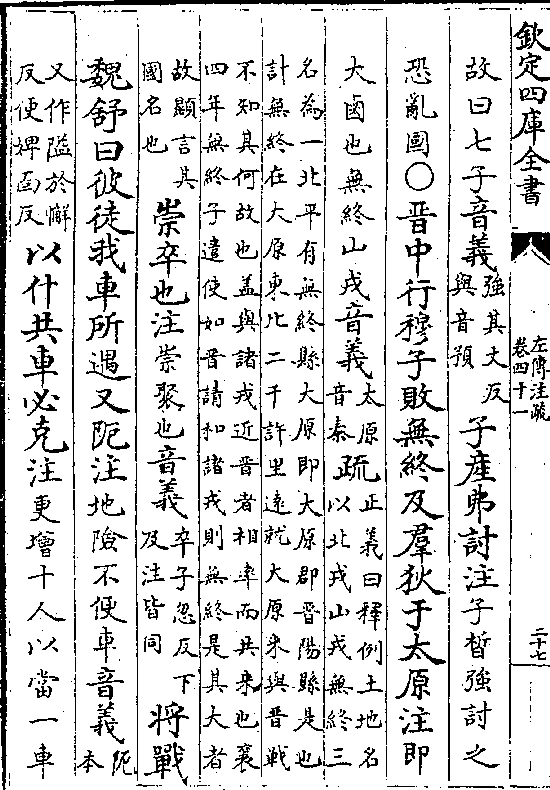 欽定四庫全書
左傳注疏
卷四十一
二十七
故曰七子音義強其丈反
與音預
子產弗討注子晳強討之
恐亂國○晋中行穆子敗無終及羣狄于太原注即
大鹵也無終山戎音義太原
音泰
疏正義曰釋例土地名
以北戎山戎無終三
名為一北平有無終縣大原即大原郡晉陽縣是也
計無終在大原東北二千許里遠就大原来與晉戰
不知其何故也盖與諸戎近晉者相率而共来也襄
四年無終子遣使如晉請和諸戎則無終是其大者
故顯言其
國名也
崇卒也注崇聚也音義卒子忽反下
及注皆同
將戰
魏舒曰彼徒我車所遇又阨注地險不便車音義阨
本
又作隘於懈
反便婢面反
以什共車必克注更增十人以當一車